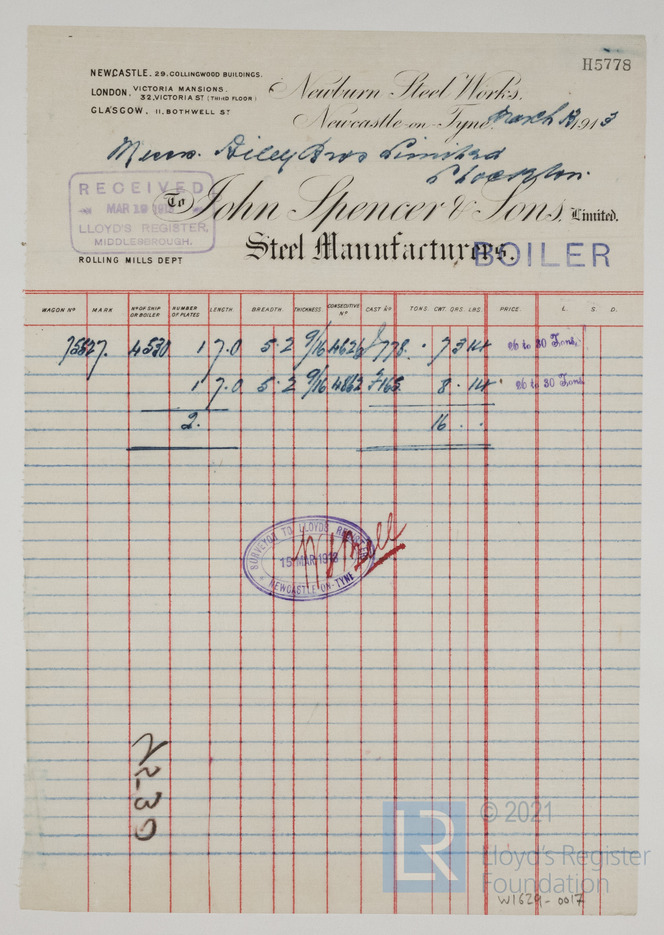 H5778
NEWCASTLE, 29, COLLINGWOOD BUILDINGS.
LONDON, VICTORIA MANSIONS,
32, VICTORIA ST (THIRD FLOOR)
GLASGOW, 11, BOTHWELL ST
Newburn Steel Works,
Newcastle-on-Tyne, March 1913
Messrs. Riley Bros Limited
Stockton.
RECEIVED
MAR 19 1913
LLOYD'S REGISTER,
MIDDLESBROUGH.
To John Spencer & Sons, Limited.
Steel Manufacturers.
BOILER
ROLLING MILLS DEPT
WAGON No MARK No OF SHIP OR BOILER NUMBER OF PLATES LENGTH. BREADTH. THICKNESS. CONSECUTIVE No CAST No TONS. CWT. QRS. LBS. PRICE. L. S. D.
4530 1 7.0 5.2 9/16 4626 778 . 7 3 14 26 to 30 Tons.
1 7.0 5.2 9/16 4862 165 8 . 14 26 to 30 Tons.
2. 16 . .
SURVEYOR TO LLOYDS REGISTER
15 MAR 1913
NEWCASTLE-ON-TYNE
2230
LR
© 2021
Lloyd's Register
Foundation
W1629-0017